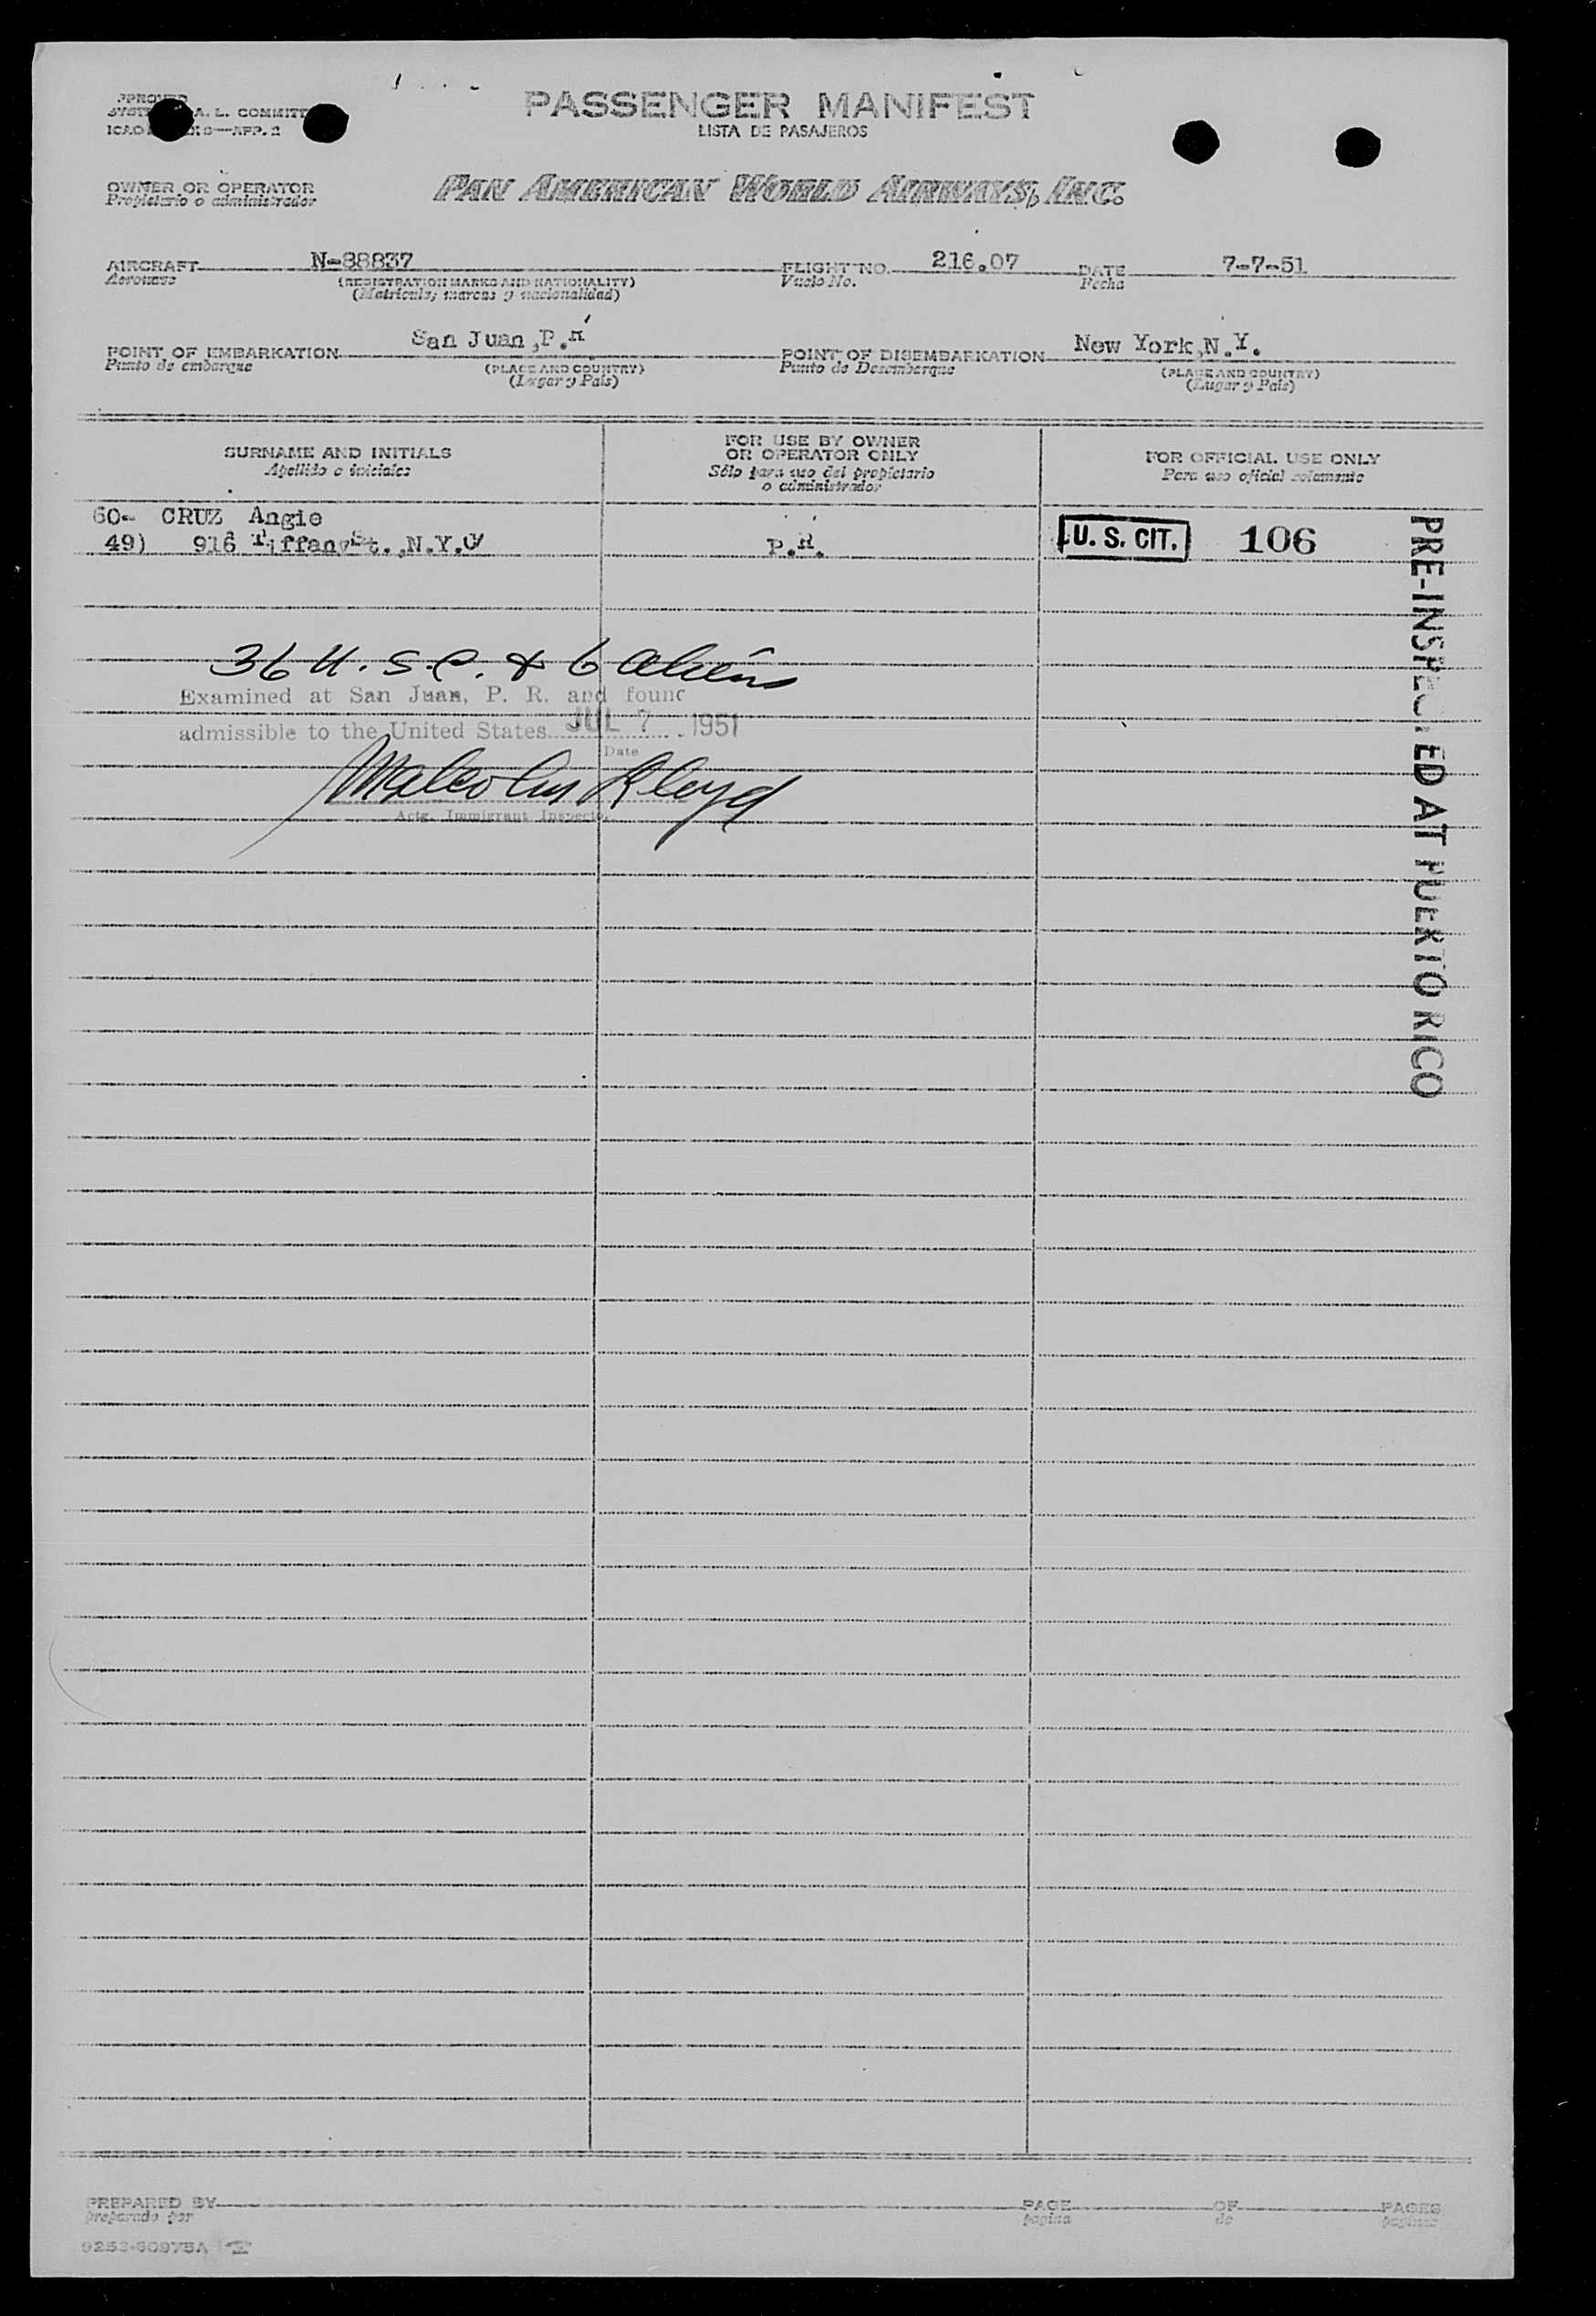 PASSENGER MANIFEST
LISTA DE PASAJEROS
A. L. COMMITT
APP. 2
OWNER OR OPERATOR
Propietario o administrador
PAN AMERICAN WORLD AIRWAYS, INC.
AIRCRAFT N-88837 FLIGHT NO. 216.07 DATE 7-7-51
Aeronave (REGISTRATION MARKS AND NATIONALITY) Vuelo No. Fecha
(Matricula, marcas y nacionalidad)
POINT OF EMBARKATION San Juan, P.R POINT OF DISEMBARKATION New York, N.Y.
Punto de embarque (PLACE AND COUNTRY) Punto de Desembarque (PLACE AND COUNTRY)
(Lugar y Pais) (Lugar y Pais)
SURNAME AND INITIALS
Apellido e iniciales
FOR USE BY OWNER
OR OPERATOR ONLY
Sólo para uso del propietario
o administrador
FOR OFFICIAL USE ONLY
Para uso oficial solamente
60- CRUZ Angie
49) 916 Tiffany St., N.Y.C P.R. U. S. CIT. 106
PRE-INSPECTED AT PUERTO RICO
36 U.S.C. & 6 aliens
Examined at San Juan, P. R. and found
admissible to the United States JUL 7 1951
Date
Malcolm Lloyd
Actg. Immigrant Inspector
PREPARED BY PAGE OF PAGES
preparado por pagina de paginas